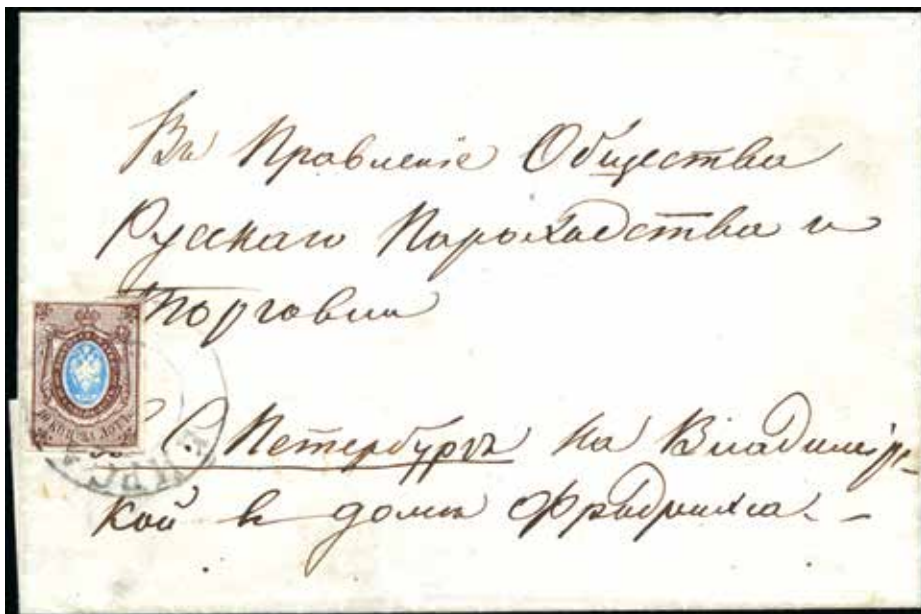 Въ Правленіе Общества
Русскаго Пароходства и
Торговли
С Петербургъ На Владимірс-
кой в домъ Фридрихса
10 КОП. ЗА ЛОТЪ